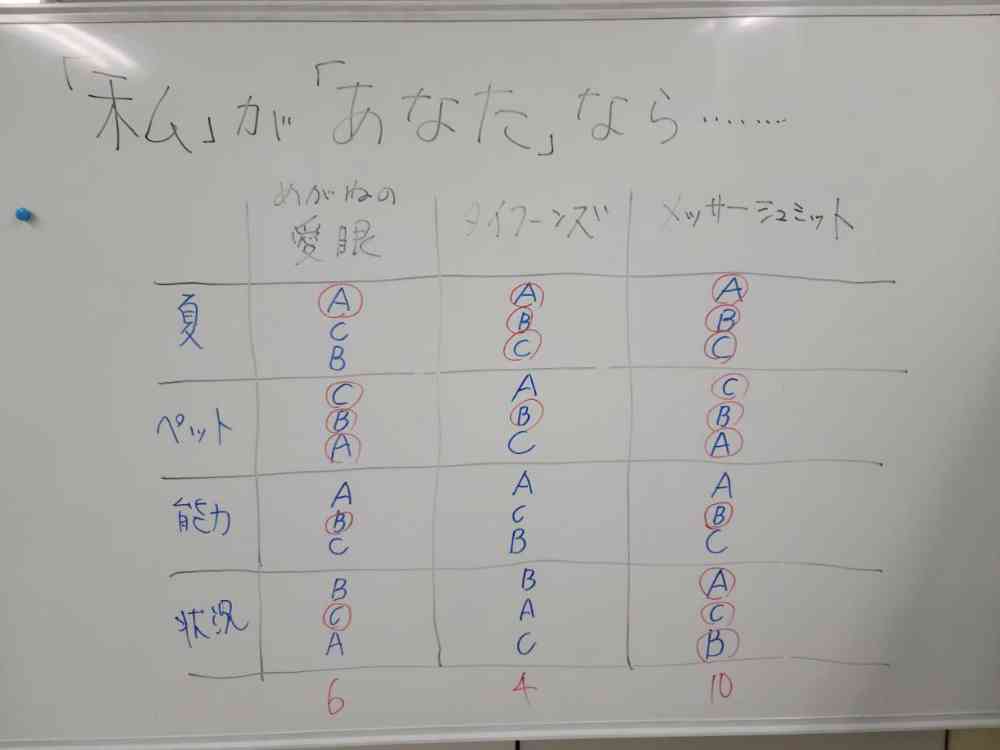 「私」が「あなた」なら‥‥‥‥
めがねの
愛眼
タイフーンズ
メッサーシュミット
夏
A
C
B
A
B
C
A
B
C
ペット
C
B
A
A
B
C
C
B
A
能力
A
B
C
A
C
B
A
B
C
状況
B
C
A
B
A
C
A
C
B
6
4
10